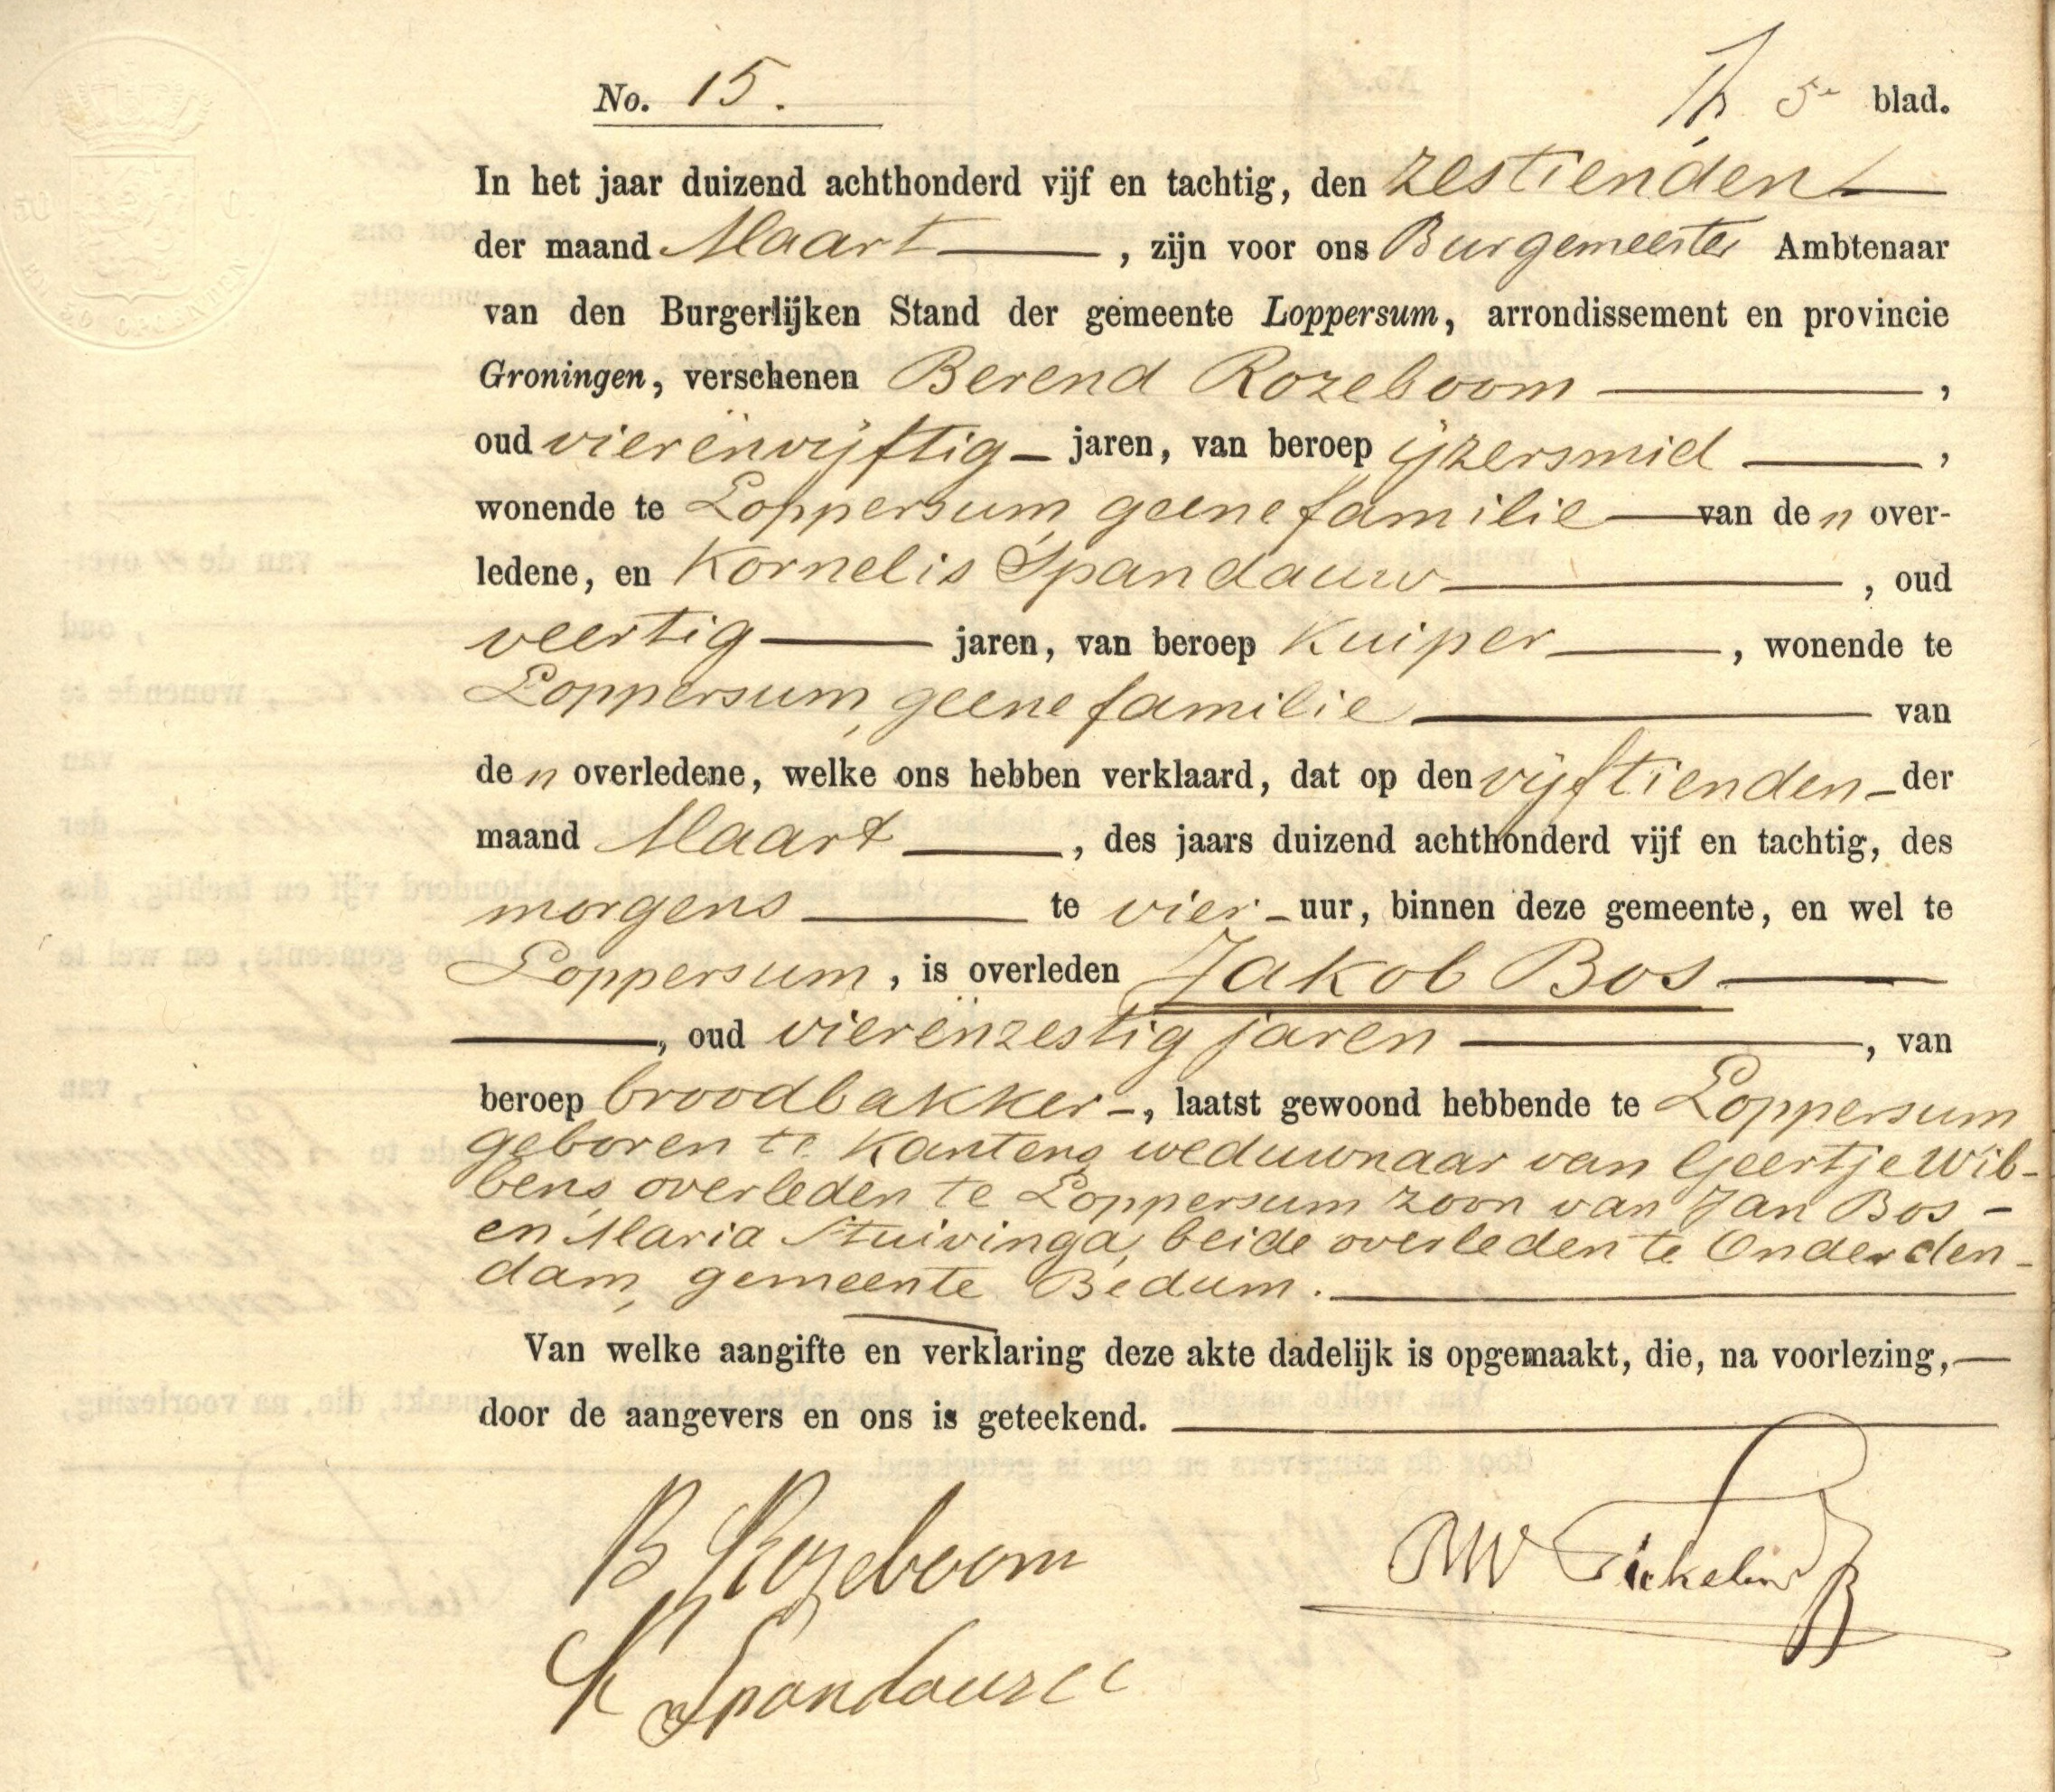 No. 15. 5e blad.
In het jaar duizend achthonderd vijf en tachtig, den zestienden
der maand Maart, zijn voor ons Burgemeester Ambtenaar
van den Burgerlijken Stand der gemeente Loppersum, arrondissement en provincie
Groningen, verschenen Berend Rozeboom,
oud vierenvijftig jaren, van beroep ijzersmid,
wonende te Loppersum, geene familie van den over-
ledene, en Kornelis Spandauw, oud
veertig jaren, van beroep Kuiper, wonende te
Loppersum, geene familie van
den overledene, welke ons hebben verklaard, dat op den vijftienden der
maand Maart, des jaars duizend achthonderd vijf en tachtig, des
morgens te vier uur, binnen deze gemeente, en wel te
Loppersum, is overleden Jakob Bos
, oud vierënzestig jaren, van
beroep broodbakker, laatst gewoond hebbende te Loppersum
geboren te Kantens weduwnaar van Geertje Wib-
bens, overleden te Loppersum zoon van Jan Bos -
en Maria Stuivinga, beide overleden te Onderden-
dam, gemeente Bedum.
Van welke aangifte en verklaring deze akte dadelijk is opgemaakt, die, na voorlezing,
door de aangevers en ons is geteekend.
B Rozeboom
K Spandauw